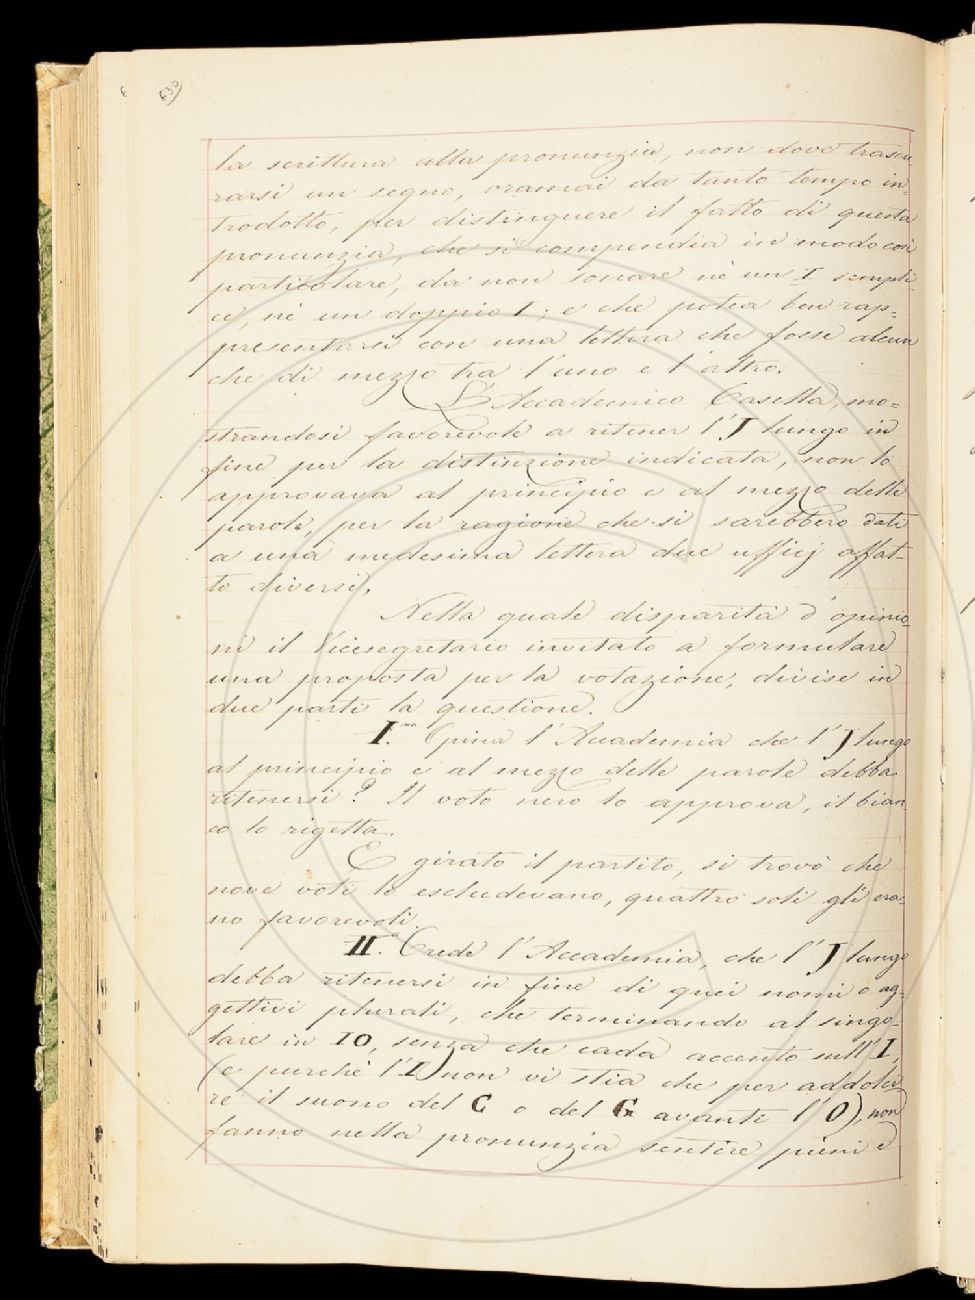 630
la scrittura alla pronunzia, non dové trascu
rarsi un segno, oramai da tanto tempo in
trodotto, per distinguere il fatto di questa
pronunzia, che si compendia in modo così
particolare, da non sonare nè un I sempli-
ce, nè un doppio I; e che potea ben rap-
presentarsi con una lettera che fosse alcun
che di mezzo tra l'uno e l'altro.
L'Accademico Casella, mo-
strandosi favorevole a ritener l'J lungo in
fine per la distinzione indicata, non lo
approvava al principio e al mezzo delle
parole, per la ragione che si sarebbero dati
a una medesima lettera due ufficj affat-
to diversi.
Nella quale disparità d'opinio-
ni il Vicesegretario invitato a formulare
una proposta per la votazione, divise in
due parti la questione.
I.ma Opina l'Accademia che l'J lungo
al principio e al mezzo delle parole debba
ritenersi? Il voto nero lo approva, il bian
co lo rigetta.
E girato il partito, si trovò che
nove voti lo escludevano, quattro soli gli era-
no favorevoli.
II.a Crede l'Accademia, che l'J lungo
debba ritenersi in fine di quei nomi o ag-
gettivi plurali, che terminando al singo-
lare in IO, senza che cada accento sull'I,
(e purchè l'I non vi stia che per addolci
re il suono del C o del G avanti l'O), non
fanno nella pronunzia sentire pieni e